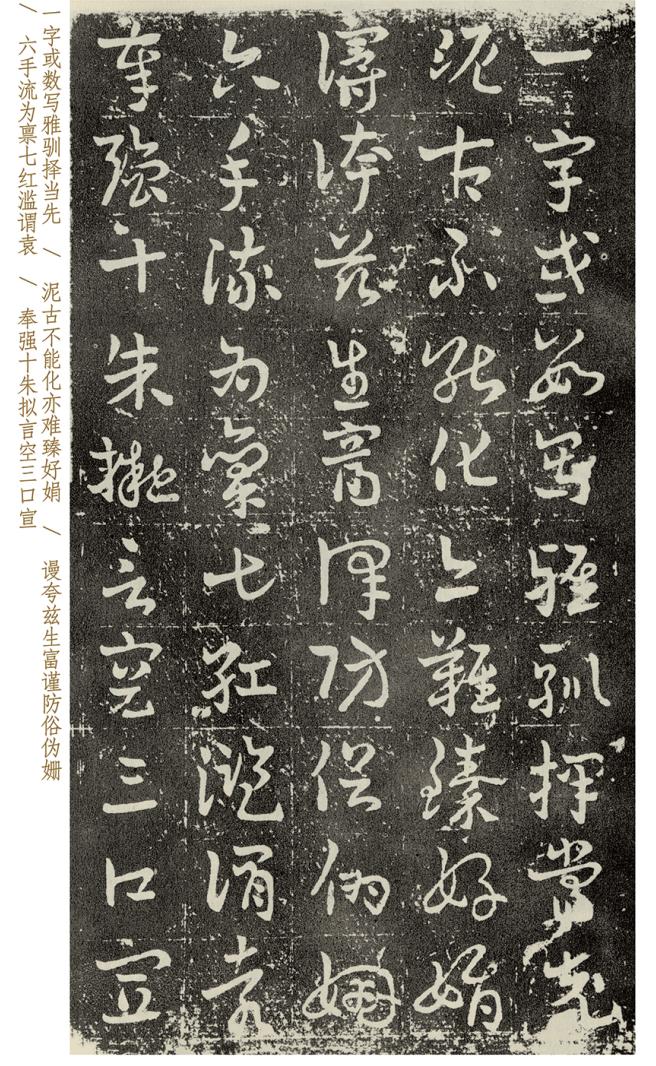 一字或數寫雅馴擇當先
泥古不能化亦難臻好娟
謾夸茲生富謹防俗偽姍
六手流為稟七紅濫謂袁
奉強十朱擬言空三口宣
一字或数写雅驯择当先 / 泥古不能化亦难臻好娟 / 谩夸兹生富谨防俗伪姗
/ 六手流为禀七红滥谓袁 / 奉强十朱拟言空三口宣